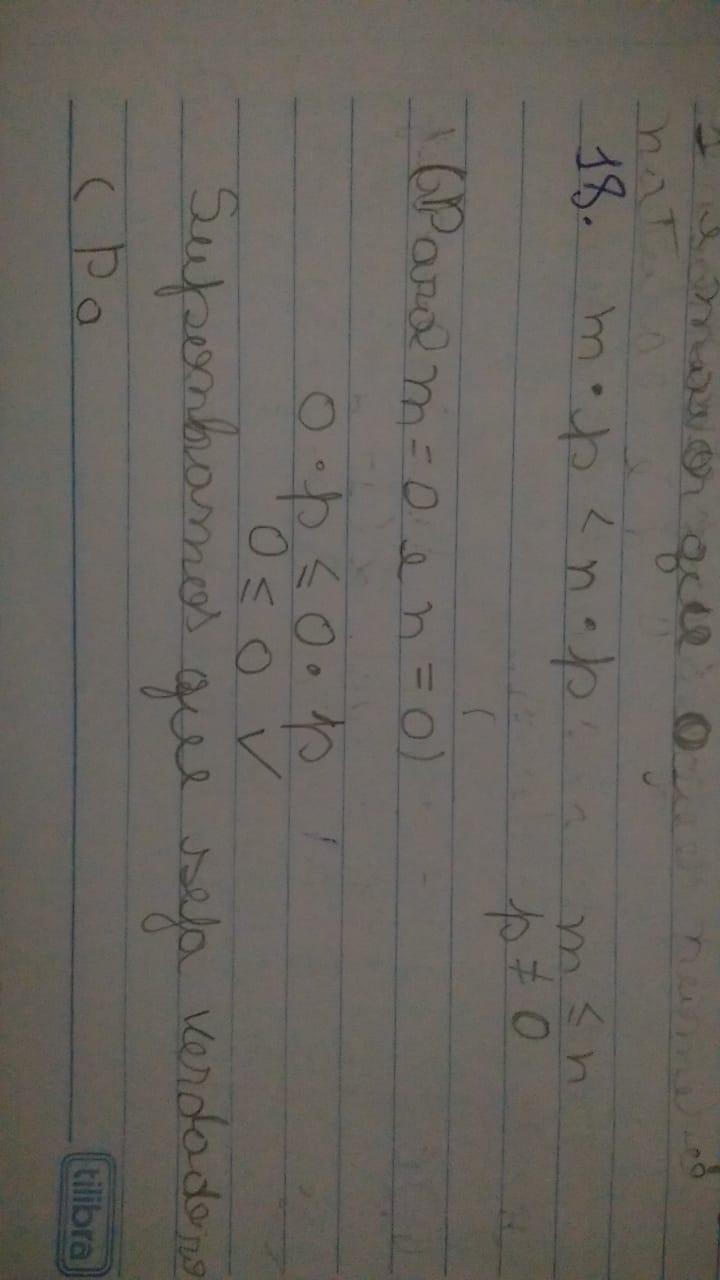 que
18. m · p < n · p m ≤ n
p ≠ 0
(Para m = 0 e n = 0)
0 · p ≤ 0 · p
0 ≤ 0 V
Suponhamos que seja verdadeiro
( Po
tilibra